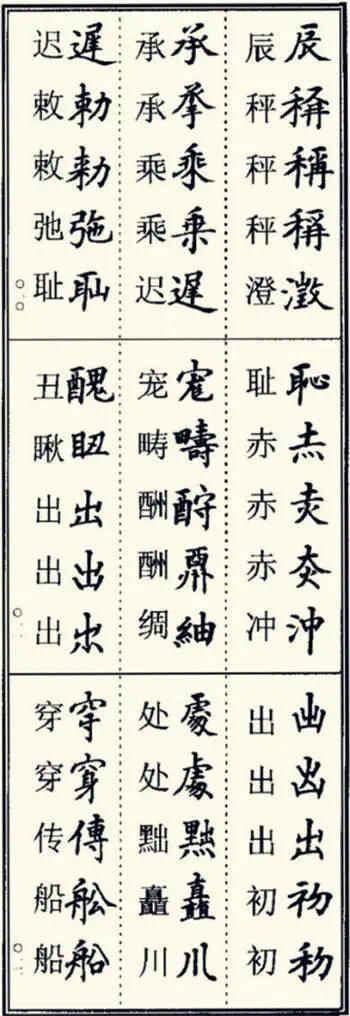 辰稱稱稱澂
辰秤秤秤澄
承乘乗遲
承承乘乘迟
遲勅勑耻
迟敕敕弛耻
恥沖
耻赤赤赤冲
疇紬
宠畴酬酬绸
醜出出出
丑瞅出出出
出出出初
出出出初初
處處黜矗川
处处黜矗川
穿穿傳舩船
穿穿传船船